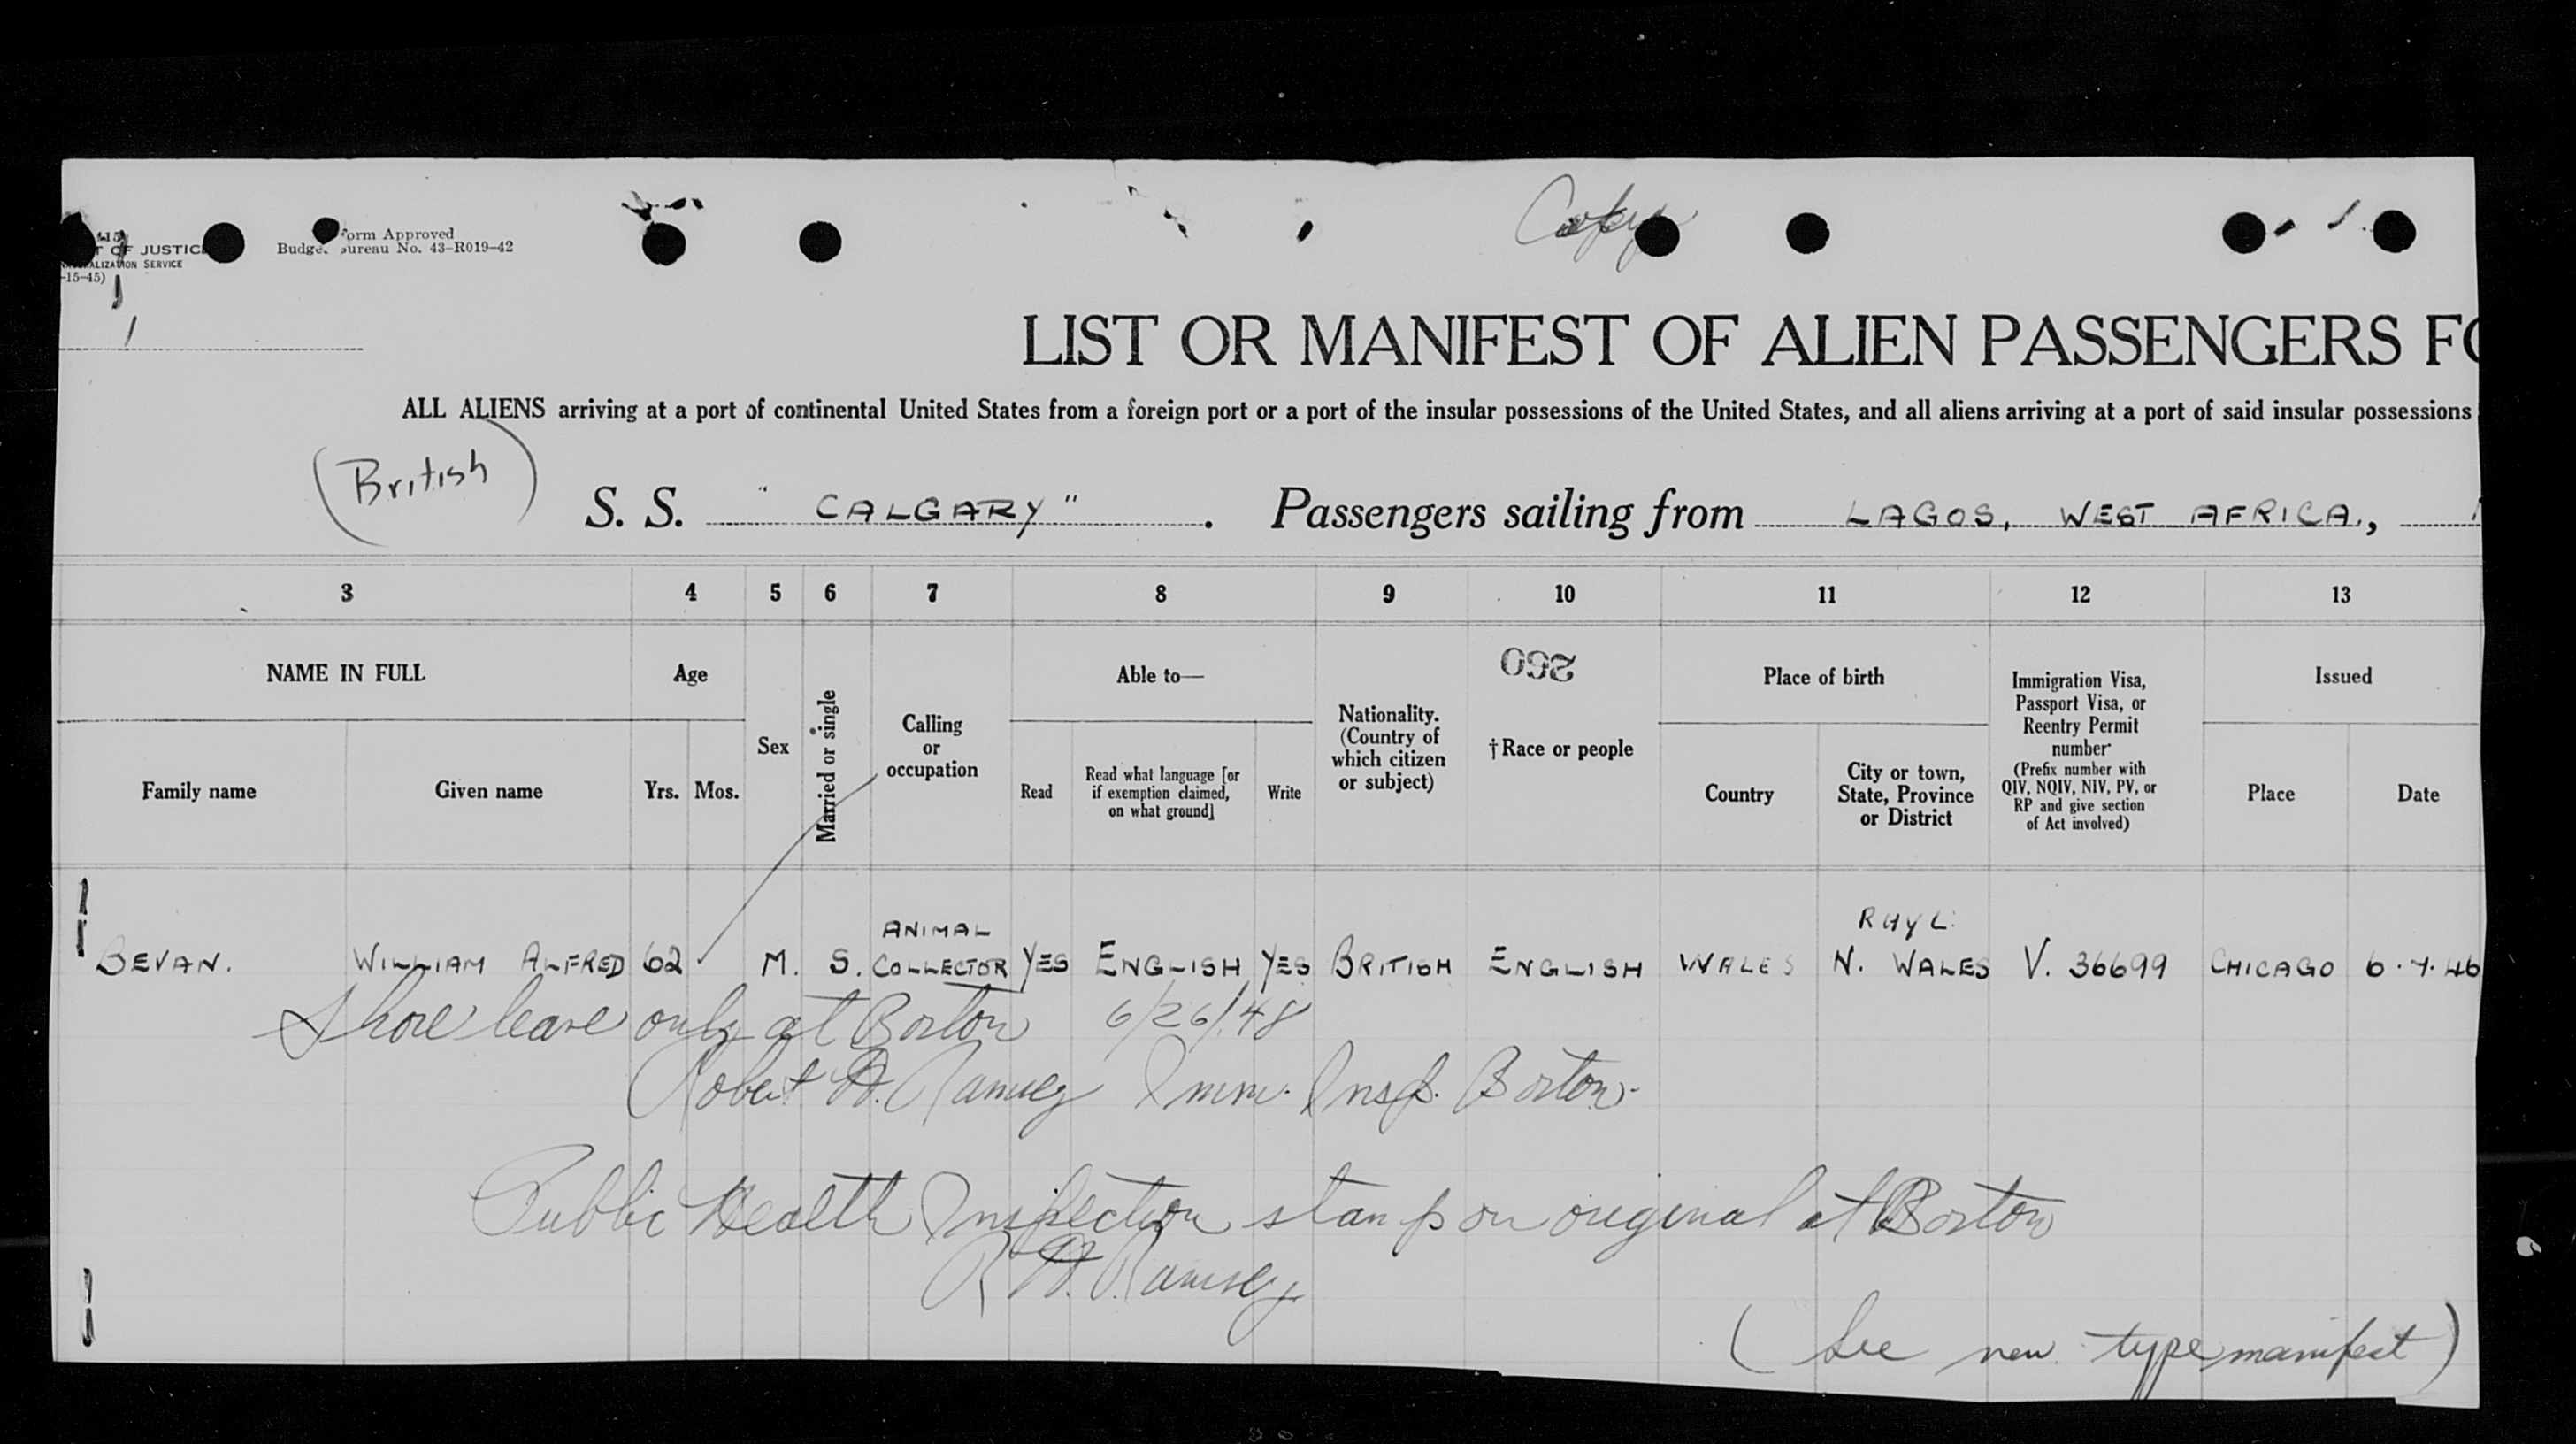 Copy
T OF JUSTICE
ALIZATION SERVICE
-15-45)
Form Approved
Budget Bureau No. 43-R019-42
LIST OR MANIFEST OF ALIEN PASSENGERS FO
ALL ALIENS arriving at a port of continental United States from a foreign port or a port of the insular possessions of the United States, and all aliens arriving at a port of said insular possessions
(British) S. S. "CALGARY". Passengers sailing from LAGOS, WEST AFRICA.,
3 4 5 6 7 8 9 10 11 12 13
NAME IN FULL
Family name Given name
Age
Yrs. Mos.
Sex
Married or single
Calling
or
occupation
Able to—
Read
Read what language [or
if exemption claimed,
on what ground]
Write
Nationality.
(Country of
which citizen
or subject)
260
†Race or people
Place of birth
Country
City or town,
State, Province
or District
Immigration Visa,
Passport Visa, or
Reentry Permit
number
(Prefix number with
QIV, NQIV, NIV, PV, or
RP and give section
of Act involved)
Issued
Place Date
ANIMAL RHYL.
BEVAN. WILLIAM ALFRED 62 M. S. COLLECTOR YES ENGLISH YES BRITISH ENGLISH WALES N. WALES V. 36699 CHICAGO 6.7.46
Shore leave only at Boston 6/26/48
Robert H. Ramsey Imm. Insp. Boston.
Public Health Inspection stamp on original at Boston
R H. Ramsey
(See new type manifest)